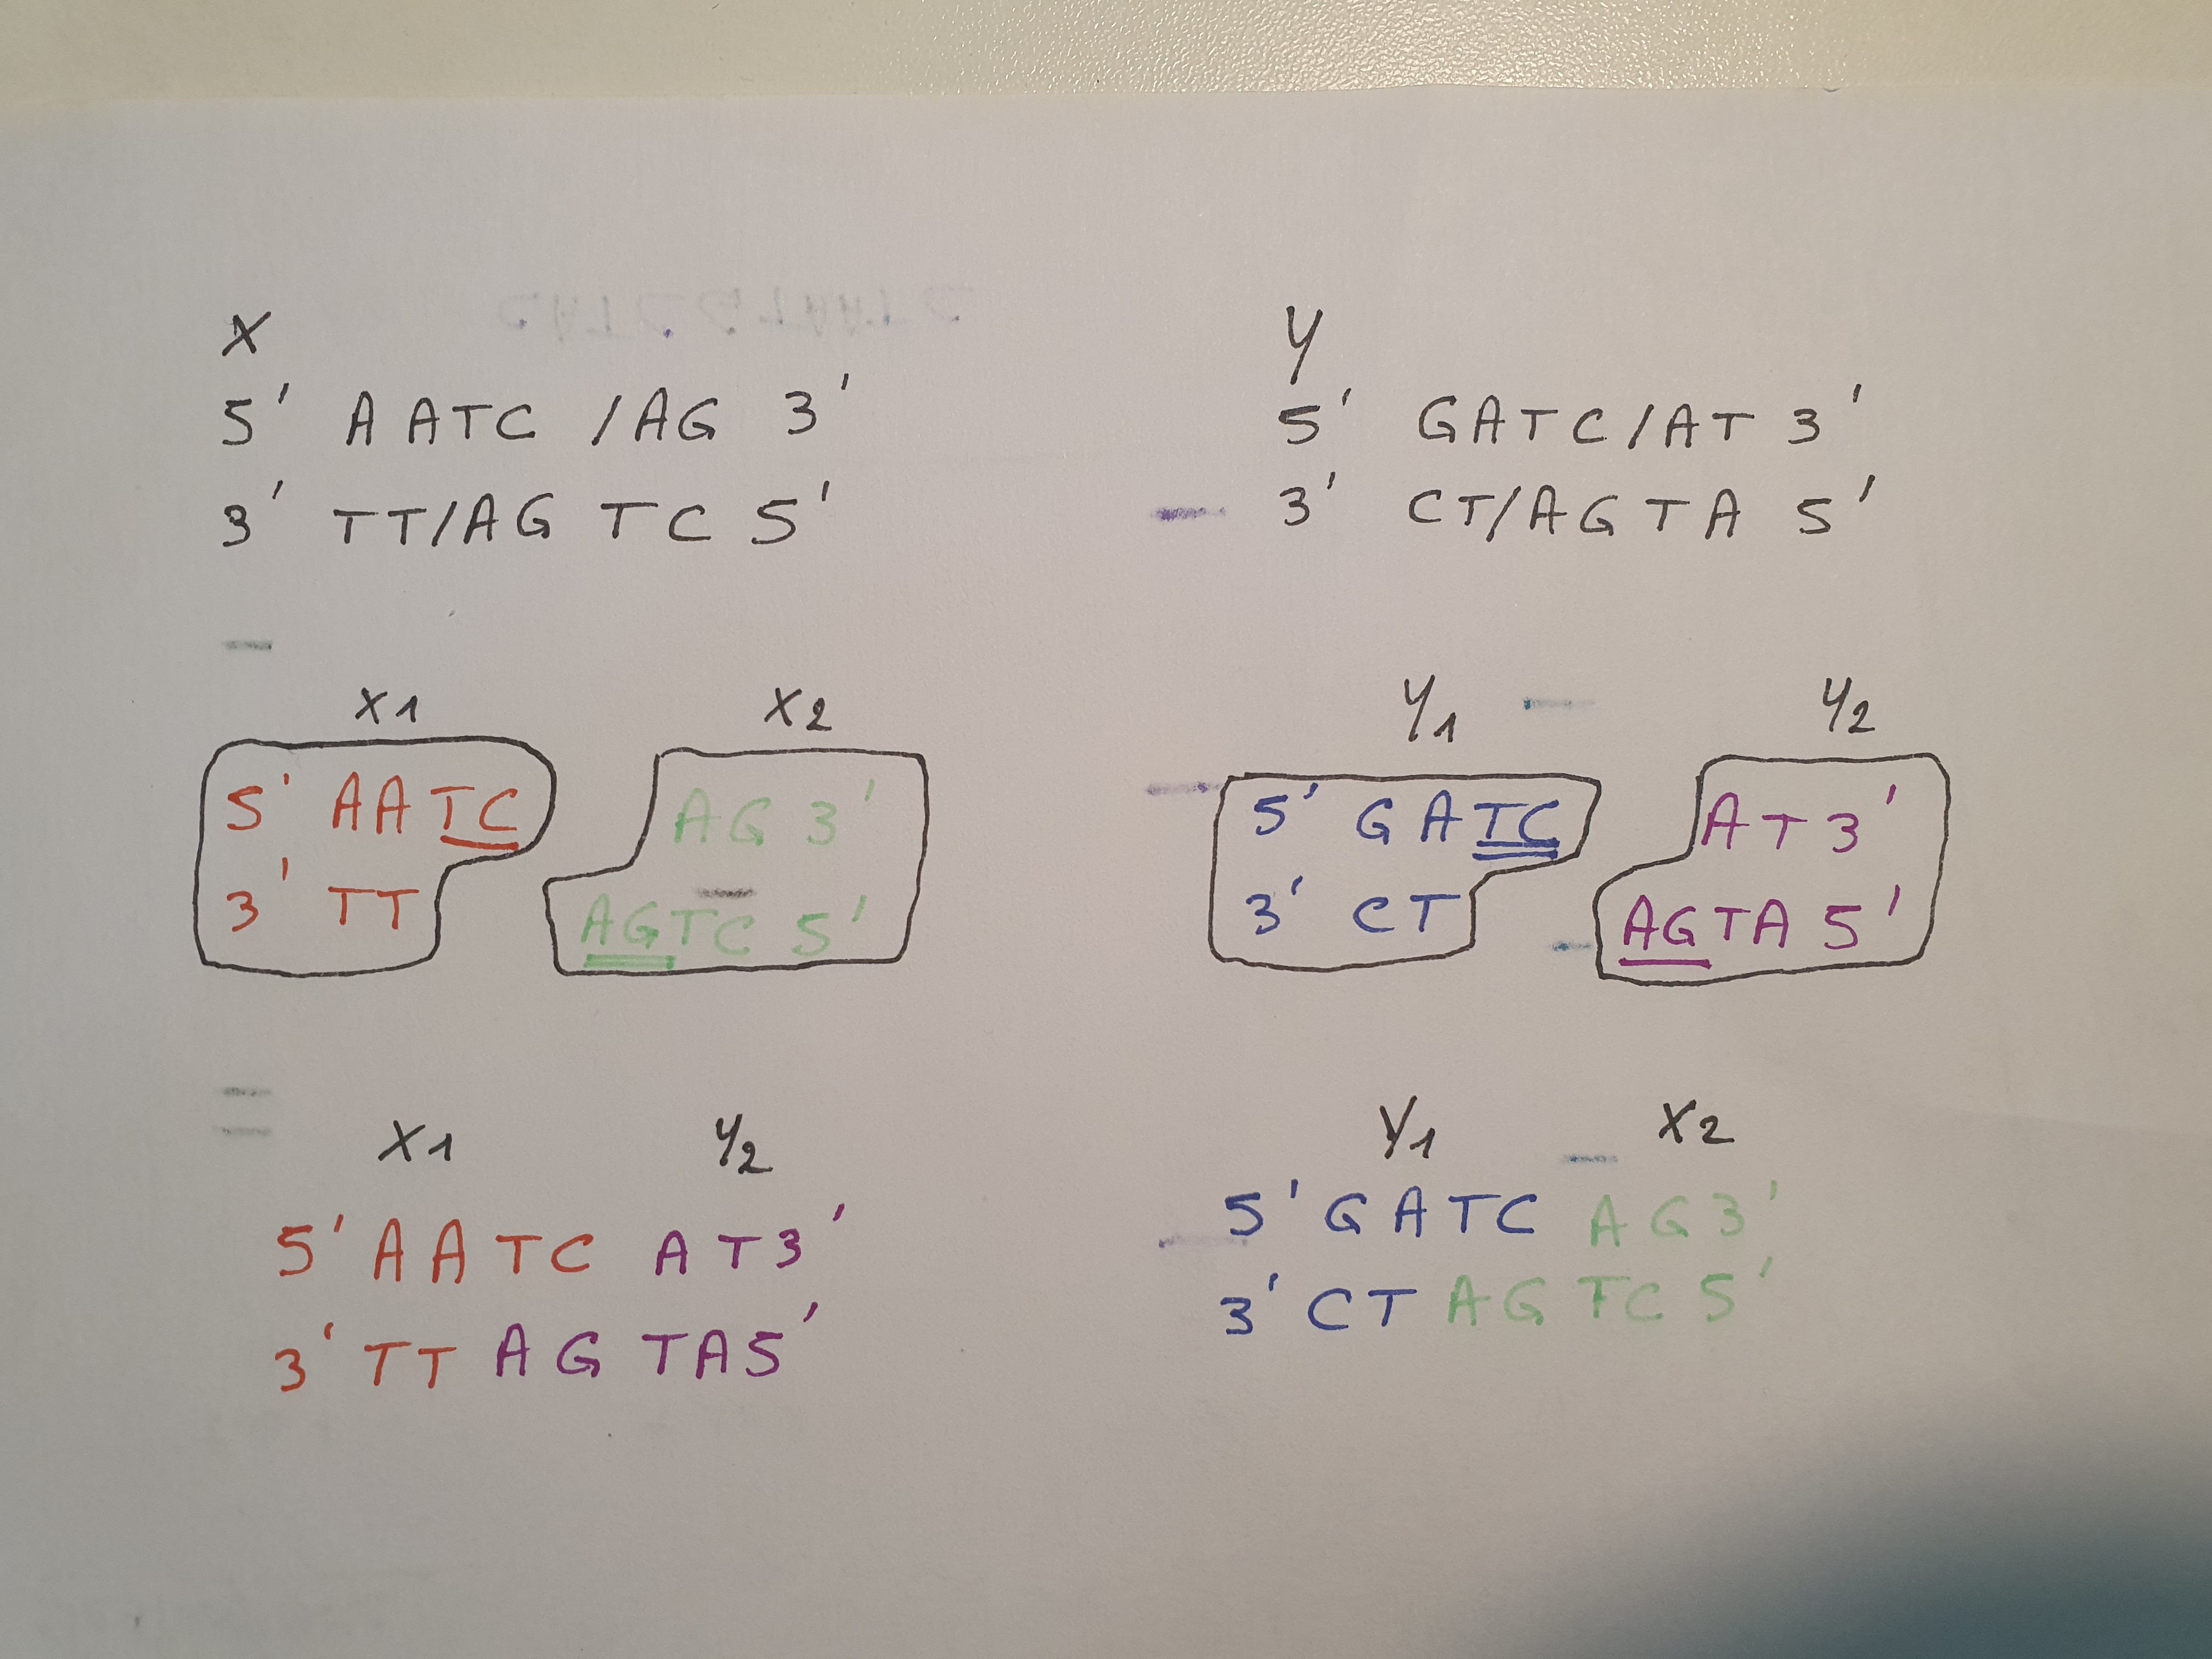 X
5' AATC /AG 3'
3' TT/AG TC 5'
Y
5' GATC/AT 3'
3' CT/AGTA 5'
X1 X2
5' AATC AG 3'
3' TT AGTC 5'
Y1 Y2
5' GATC AT 3'
3' CT AGTA 5'
X1 Y2
5' AATC AT3'
3' TT AG TA5'
Y1 X2
5' GATC AG3'
3' CT AG TC 5'